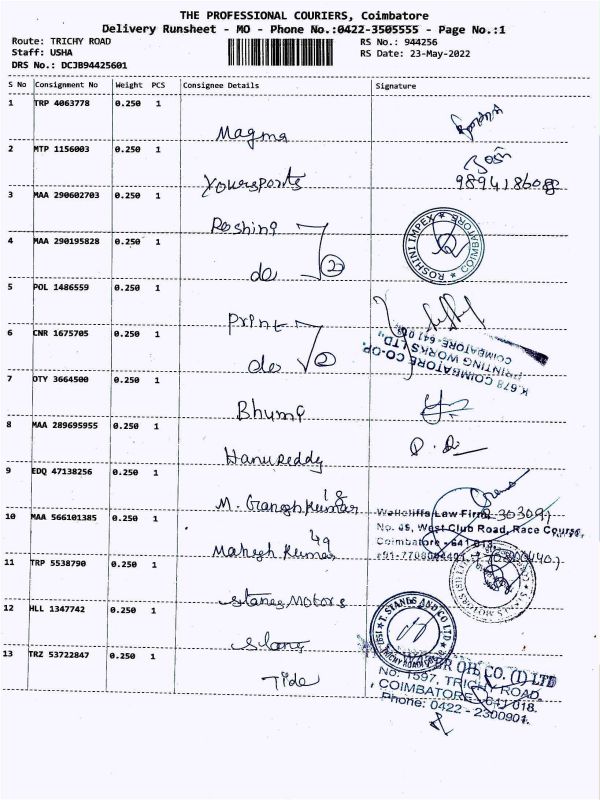 THE PROFESSIONAL COURIERS, Coimbatore
Delivery Runsheet - MO - Phone No.:0422-3505555 - Page No.:1
Route: TRICHY ROAD RS No.: 944256
Staff: USHA RS Date: 23-May-2022
DRS No.: DCJB94425601
S No Consignment No Weight PCS Consignee Details Signature
1 TRP 4063778 0.250 1
Magma
2 MTP 1156003 0.250 1
Yoursports 9894186088
3 MAA 290602703 0.250 1
Roshini
ROSHINI IMPEX * COIMBATORE *
4 MAA 290195828 0.250 1
do 2
5 POL 1486559 0.250 1
Print
6 CNR 1675705 0.250 1
do 2
K.678 COIMBATORE CO-OP.
PRINTING WORKS LTD.,
COIMBATORE- 641 018.
7 OTY 3664500 0.250 1
Bhumi
8 MAA 289695955 0.250 1
Hanureddy
9 EDQ 47138256 0.250 1
M. Ganesh Kumar
10 MAA 566101385 0.250 1
Law Firm
No. 45, West Club Road, Race Course,
Coimbatore - 641 018
Mahesh Kumar
11 TRP 5538790 0.250 1
Stanes Motors
12 HLL 1347742 0.250 1
Stanes
T. STANES AND CO LTD
13 TRZ 53722847 0.250 1
Tide
OIL CO. (I) LTD
No: 1597, TRICHY ROAD,
COIMBATORE - 641 018.
Phone: 0422 - 2300901.